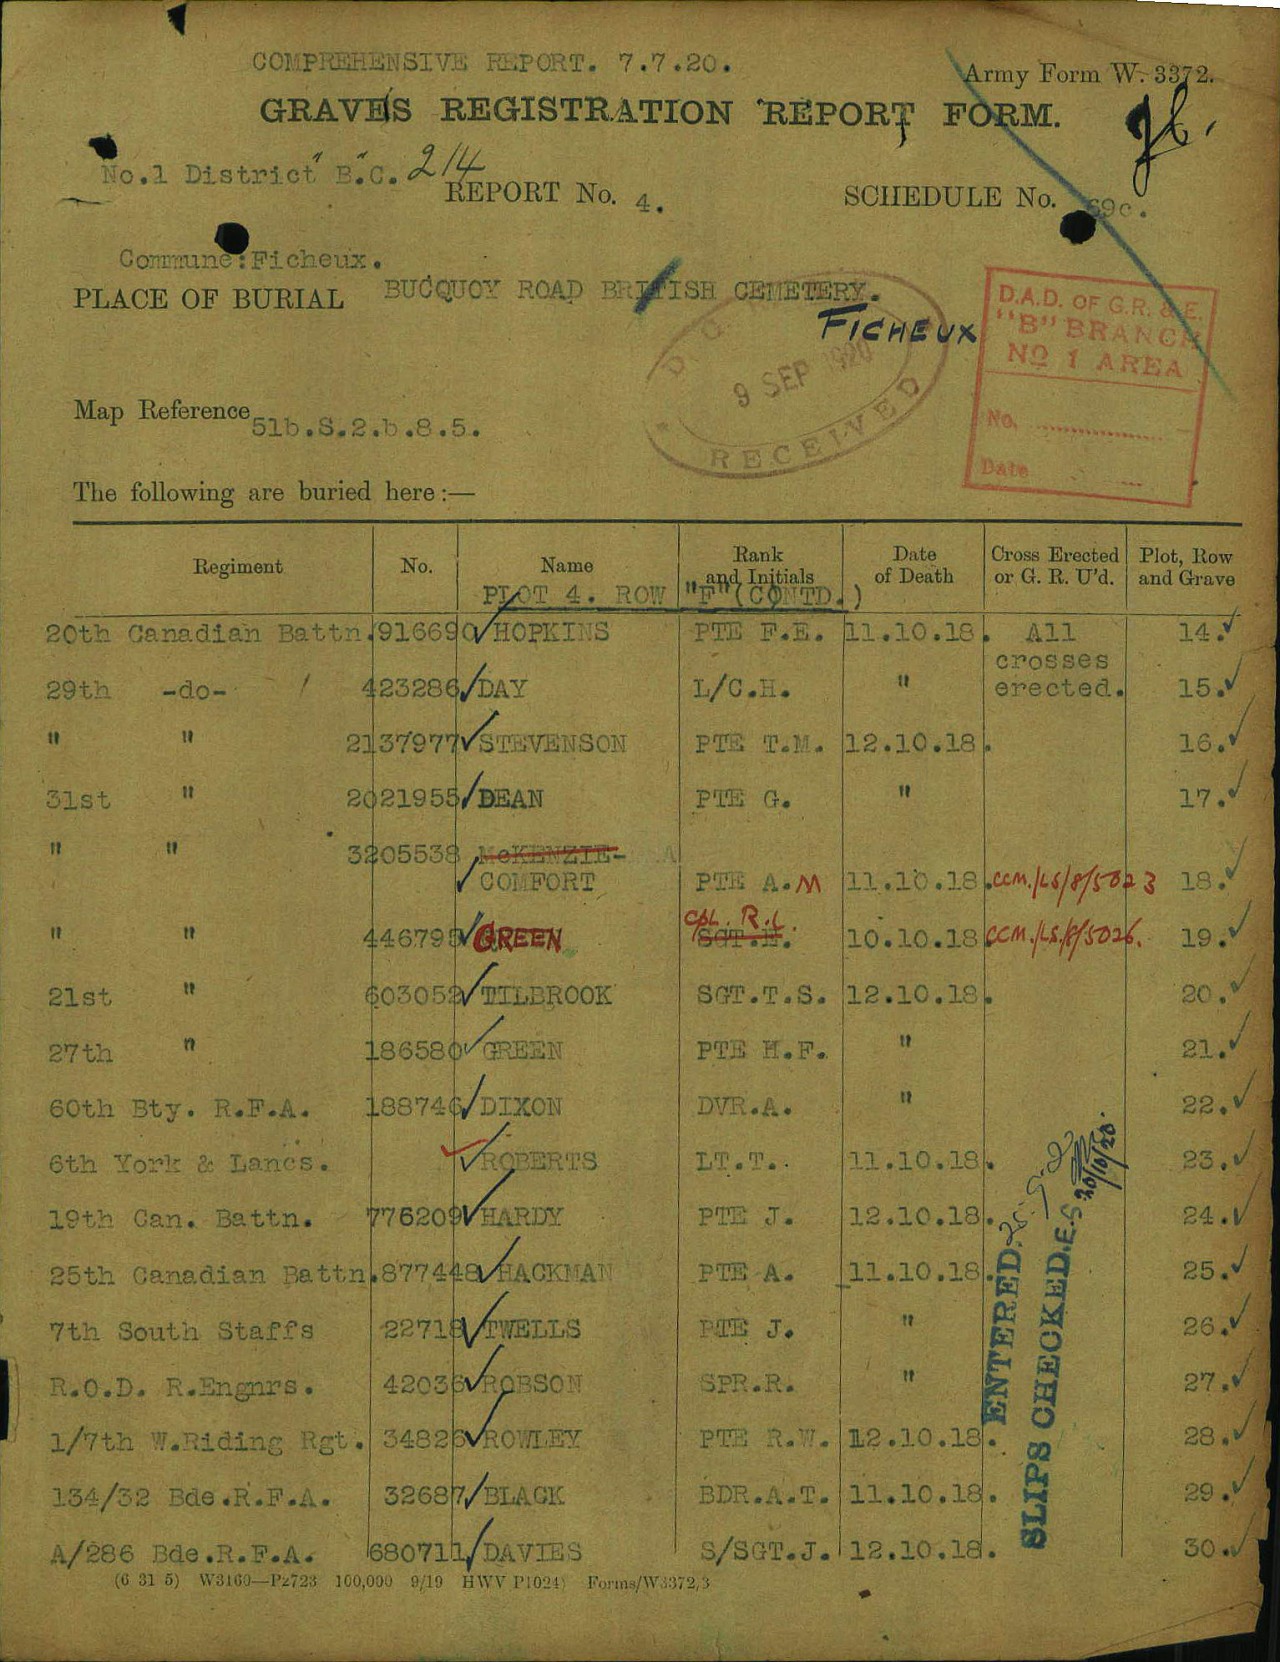 COMPREHENSIVE REPORT. 7.7.20.
Army Form W. 3372.
GRAVES REGISTRATION REPORT FORM.
No.1 District "B".C. 2/4
REPORT No. 4.
SCHEDULE No. 69c.
Commune: Ficheux.
PLACE OF BURIAL BUCQUOY ROAD BRITISH CEMETERY.
FICHEUX
D.A.D. OF G.R. & E.
"B" BRANCH
No 1 AREA
No.
Date
9 SEP 1920
RECEIVED
Map Reference 51b.S.2.b.8.5.
The following are buried here :—
Regiment No. Name Rank and Initials Date of Death Cross Erected or G. R. U'd. Plot, Row and Grave
PLOT 4. ROW "F" (CONTD.)
20th Canadian Battn. 916690 HOPKINS PTE F.E. 11.10.18. All crosses erected. 14.
29th -do- 423286 DAY L/C.H. " 15.
" " 2137977 STEVENSON PTE T.M. 12.10.18. 16.
31st " 2021955 DEAN PTE G. " 17.
" " 3205538 McKENZIE-
COMFORT PTE A.M 11.10.18. CCM./LS/8/5023 18.
CPL. R.L.
" " 446795 GREEN SGT.E. 10.10.18 CCM./LS./8/5026. 19.
21st " 603052 TILBROOK SGT.T.S. 12.10.18. 20.
27th " 186580 GREEN PTE H.F. " 21.
60th Bty. R.F.A. 188746 DIXON DVR.A. " 22.
6th York & Lancs. ROBERTS LT.T. 11.10.18. 23.
19th Can. Battn. 776209 HARDY PTE J. 12.10.18. 24.
25th Canadian Battn. 877448 HACKMAN PTE A. 11.10.18. 25.
7th South Staffs 22718 TWELLS PTE J. " 26.
R.O.D. R.Engnrs. 42036 ROBSON SPR.R. " 27.
1/7th W.Riding Rgt. 34826 ROWLEY PTE R.W. 12.10.18. 28.
134/32 Bde.R.F.A. 32687 BLACK BDR.A.T. 11.10.18. 29.
A/286 Bde.R.F.A. 680711 DAVIES S/SGT.J. 12.10.18. 30.
ENTERED.
SLIPS CHECKED. E.S. 20/10/20.
(6 31 5) W3160—P2723 100,000 9/19 HWV P1024) Forms/W3372/3